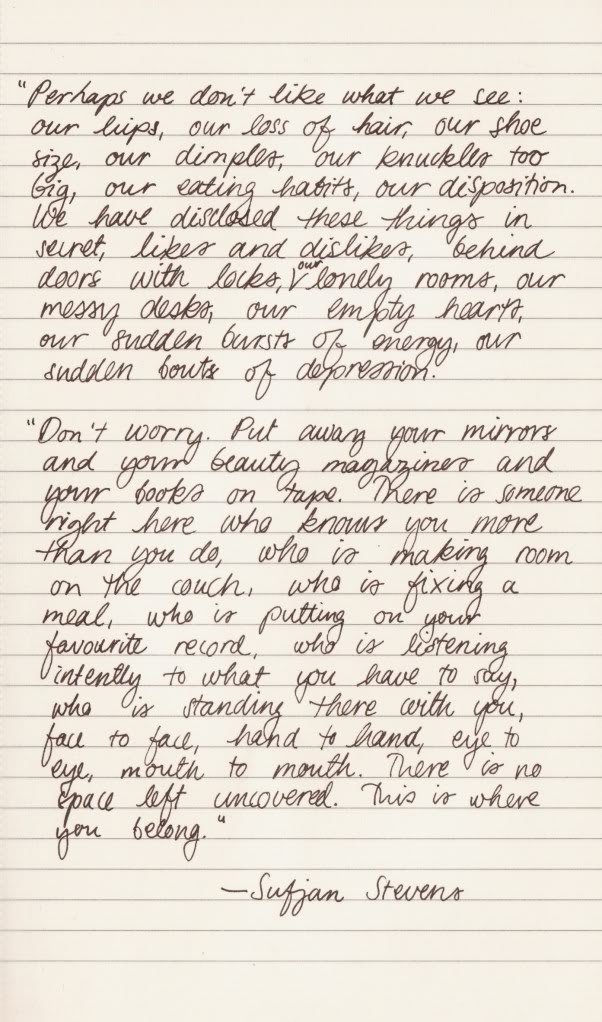 "Perhaps we don't like what we see:
our hips, our loss of hair, our shoe
size, our dimples, our knuckles too
big, our eating habits, our disposition.
We have disclosed these things in
secret, likes and dislikes, behind
doors with locks, our lonely rooms, our
messy desks, our empty hearts,
our sudden bursts of energy, our
sudden bouts of depression.
"Don't worry. Put away your mirrors
and your beauty magazines and
your books on tape. There is someone
right here who knows you more
than you do, who is making room
on the couch, who is fixing a
meal, who is putting on your
favourite record, who is listening
intently to what you have to say,
who is standing there with you,
face to face, hand to hand, eye to
eye, mouth to mouth. There is no
space left uncovered. This is where
you belong."
—Sufjan Stevens